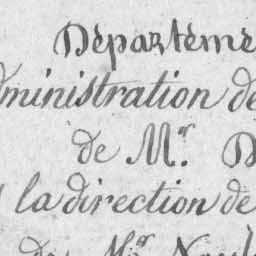 Départeme
dministration de
de Mr. D
la direction de
de Mr